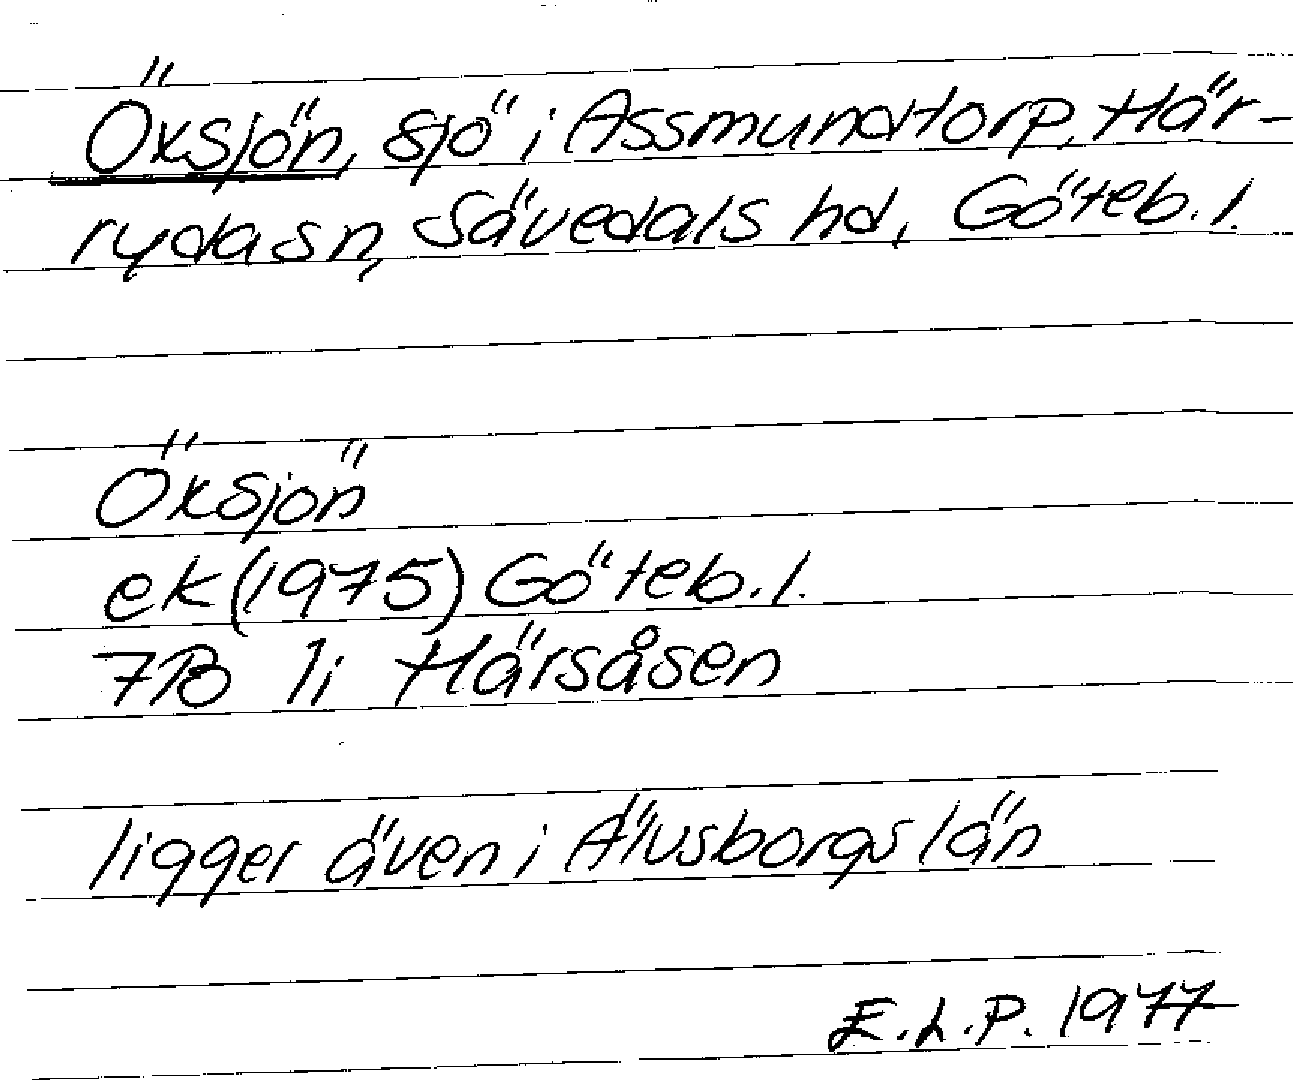 Öxsjön, sjö i Assmundtorp, Här-
ryda sn, Sävedals hd, Göteb. l.
Öxsjön
ek (1975) Göteb. l.
7B 1i Härsåsen
ligger även i Älvsborgs län
E.L.P. 1977